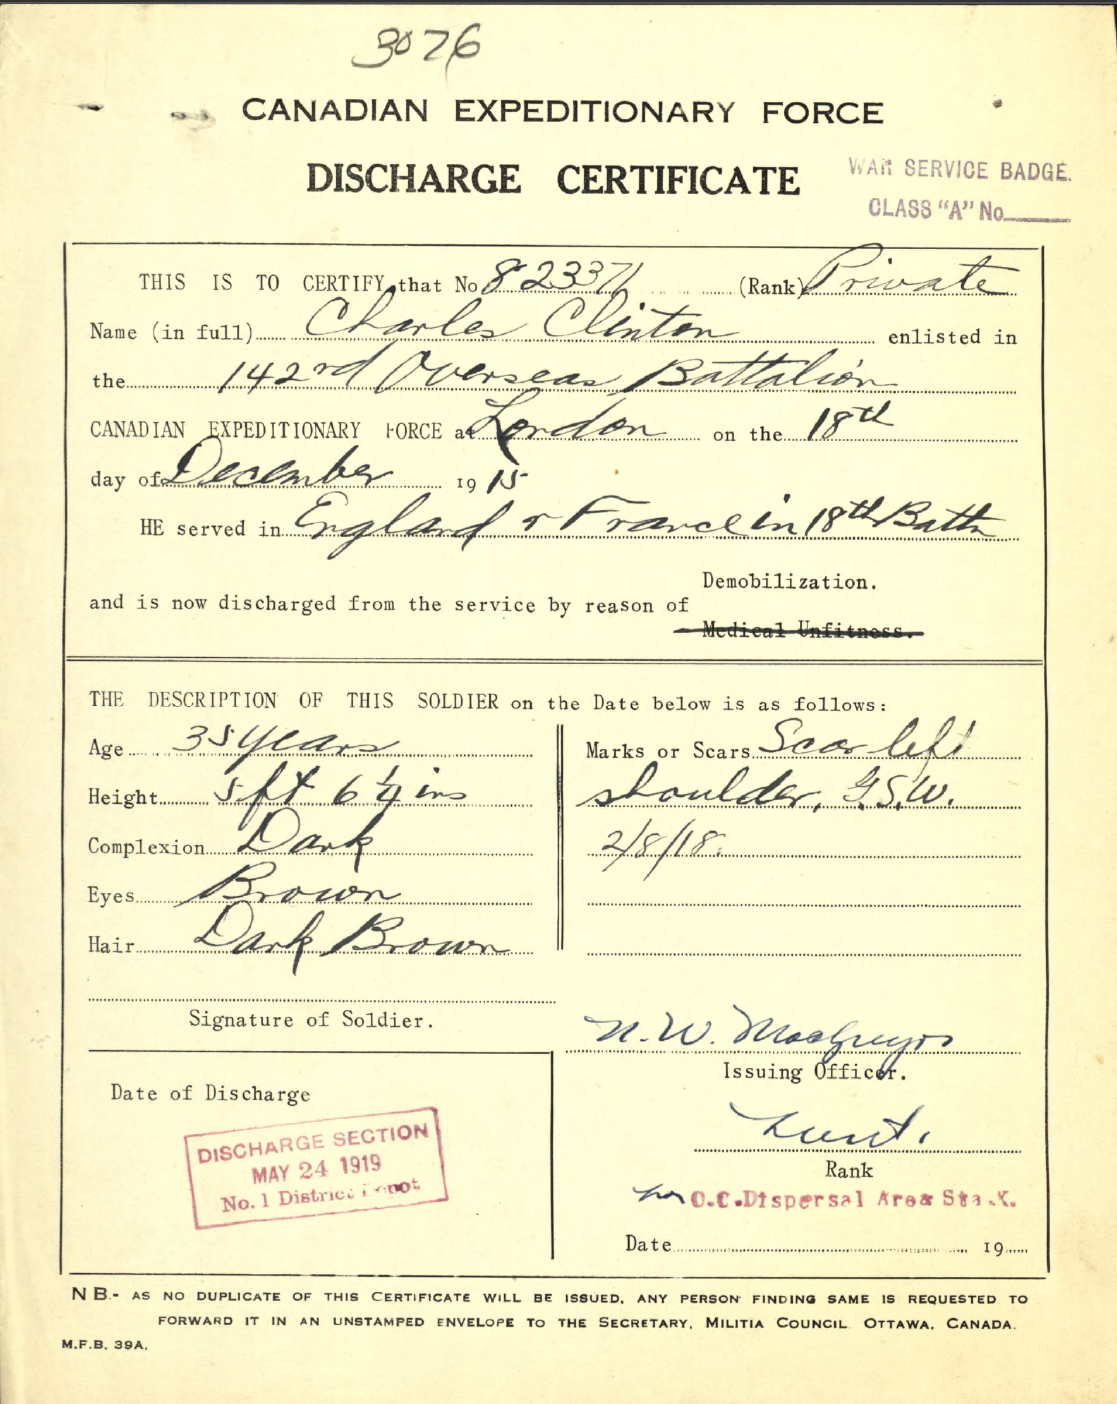 3076
CANADIAN EXPEDITIONARY FORCE
DISCHARGE CERTIFICATE
WAR SERVICE BADGE.
CLASS "A" No
THIS IS TO CERTIFY that No 823371 (Rank) Private
Name (in full) Charles Clinton enlisted in
the 142nd Overseas Battalion
CANADIAN EXPEDITIONARY FORCE at London on the 18th
day of December 1915
HE served in England & France in 18th Battn
Demobilization.
and is now discharged from the service by reason of
Medical Unfitness.
THE DESCRIPTION OF THIS SOLDIER on the Date below is as follows:
Age 35 years
Height 5 ft 6 1/4 ins
Complexion Dark
Eyes Brown
Hair Dark Brown
Marks or Scars Scar left
shoulder, G.S.W.
2/8/18.
Signature of Soldier.
N. W. MacGregor
Issuing Officer.
Date of Discharge
DISCHARGE SECTION
MAY 24 1919
No. 1 District Depot
Lieut.
Rank
for O.C. Dispersal Area Sta. K.
Date 19
NB.- AS NO DUPLICATE OF THIS CERTIFICATE WILL BE ISSUED, ANY PERSON FINDING SAME IS REQUESTED TO
FORWARD IT IN AN UNSTAMPED ENVELOPE TO THE SECRETARY, MILITIA COUNCIL, OTTAWA, CANADA.
M.F.B. 39A.